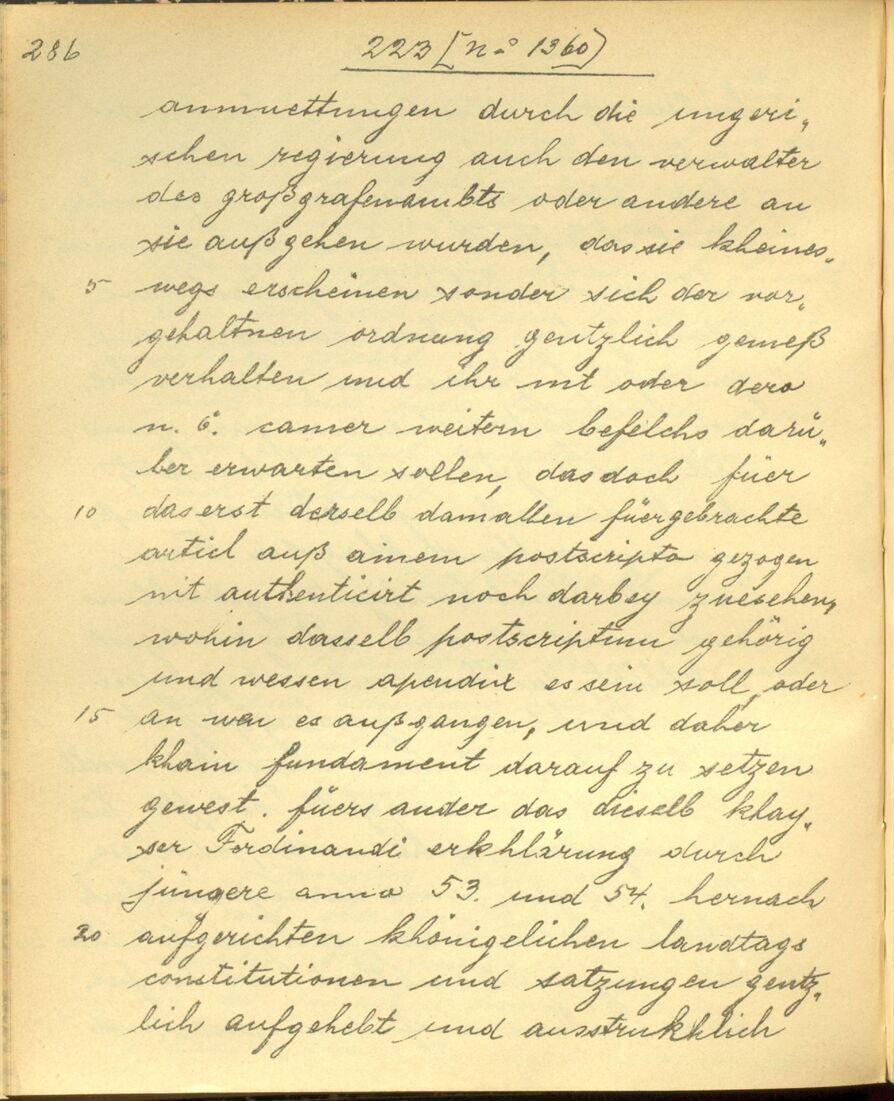 286
223 [nº 1360)
anmuettungen durch die ungeri„
schen regierung auch den verwalter
des großgrafenambts oder andere an
sie außgehen wurden, das sie kheines„
5 wegs erscheinen sonder sich der vor„
gehaltnen ordnung gentzlich gemeß
verhalten und ihr mt oder dero
n. ö. camer weitern befelchs darü„
ber erwarten sollen, das doch füer
10 das erst derselb damallen füergebrachte
articl auß ainem postscripto gezogen
nit authenticirt noch darbey zuesehen,
wohin dasselb postscriptum gehörig
und wessen apendix es sein soll, oder
15 an wen es außgangen, und daher
khain fundament darauf zu setzen
gewest. füers ander das dieselb khay„
ser Ferdinandi erkhlärung durch
jüngere anno 53. und 54. hernach
20 aufgerichten khönigelichen landtags
constitutionen und satzungen gentz„
lich aufgehebt und ausstrukhlich